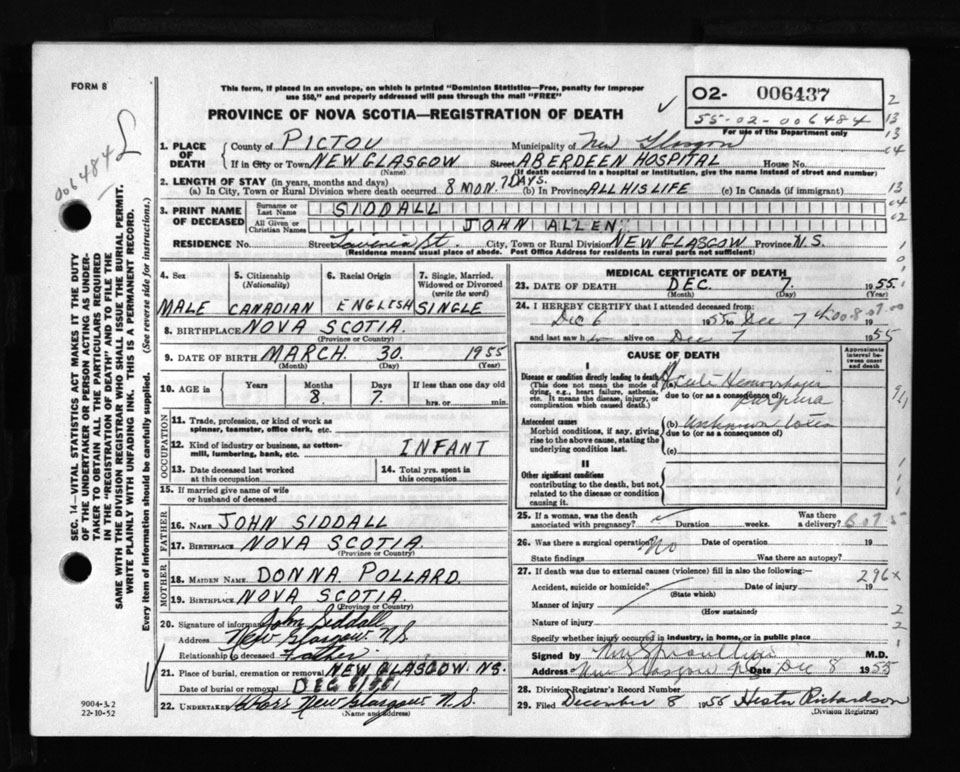 FORM 8
This form, if placed in an envelope, on which is printed "Dominion Statistics—Free, penalty for improper
use $50," and properly addressed will pass through the mail "FREE"
PROVINCE OF NOVA SCOTIA—REGISTRATION OF DEATH
02- 006437
55-02-006484
For use of the Department only
006484
SEC. 14—VITAL STATISTICS ACT MAKES IT THE DUTY
OF THE UNDERTAKER OR PERSON ACTING AS UNDER-
TAKER TO OBTAIN ALL THE PARTICULARS REQUIRED
IN THE "REGISTRATION OF DEATH" AND TO FILE THE
SAME WITH THE DIVISION REGISTRAR WHO SHALL ISSUE THE BURIAL PERMIT.
WRITE PLAINLY WITH UNFADING INK. THIS IS A PERMANENT RECORD.
Every item of information should be carefully supplied. (See reverse side for instructions.)
1. PLACE OF DEATH
County of PICTOU Municipality of New Glasgow
If in City or Town NEW GLASGOW Street ABERDEEN HOSPITAL House No.
(Name) (If death occurred in a hospital or institution, give the name instead of street and number)
2. LENGTH OF STAY (in years, months and days)
(a) In City, Town or Rural Division where death occurred 8 MON. 7 DAYS. (b) In Province ALL HIS LIFE (c) In Canada (if immigrant)
3. PRINT NAME OF DECEASED
Surname or Last Name SIDDALL
All Given or Christian Names JOHN ALLEN
RESIDENCE No. Street Lavinia St. City, Town or Rural Division NEW GLASGOW Province N.S.
(Residence means usual place of abode. Post Office Address for residents in rural parts not sufficient)
4. Sex
MALE
5. Citizenship (Nationality)
CANADIAN
6. Racial Origin
ENGLISH
7. Single, Married, Widowed or Divorced (write the word)
SINGLE
8. BIRTHPLACE NOVA SCOTIA.
(Province or Country)
9. DATE OF BIRTH MARCH 30. 1955
(Month) (Day) (Year)
10. AGE in Years Months 8. Days 7. If less than one day old hrs. or min.
OCCUPATION
11. Trade, profession, or kind of work as
spinner, teamster, office clerk, etc.
12. Kind of industry or business, as cotton-
mill, lumbering, bank, etc. INFANT
13. Date deceased last worked at this occupation
14. Total yrs. spent in this occupation
15. If married give name of wife
or husband of deceased
FATHER
16. NAME JOHN SIDDALL
17. BIRTHPLACE NOVA SCOTIA.
(Province or Country)
MOTHER
18. MAIDEN NAME DONNA POLLARD.
19. BIRTHPLACE NOVA SCOTIA.
(Province or Country)
20. Signature of informant John Siddall
Address New Glasgow N.S
Relationship to deceased Father
21. Place of burial, cremation or removal NEW GLASGOW. NS.
Date of burial or removal DEC
22. UNDERTAKER New Glasgow N.S.
(Name and address)
9004-3.2
22-10-52
MEDICAL CERTIFICATE OF DEATH
23. DATE OF DEATH DEC. 7. 1955
(Month) (Day)
24. I HEREBY CERTIFY that I attended deceased from:
Dec 6 1955 to Dec 7th 19
and last saw h alive on Dec 7 1955
CAUSE OF DEATH
Approximate interval between onset and death
I
Disease or condition directly leading to death
(This does not mean the mode of
dying, e.g., heart failure, asthenia,
etc. It means the disease, injury, or
complication which caused death.)
(a) Acute Hemorrhagic
due to (or as a consequence of)
purpura
Antecedent causes
Morbid conditions, if any, giving
rise to the above cause, stating the
underlying condition last.
(b) Unknown
due to (or as a consequence of)
(c)
II
Other significant conditions
contributing to the death, but not
related to the disease or condition
causing it.
25. If a woman, was the death
associated with pregnancy? Duration weeks. Was there a delivery?
26. Was there a surgical operation? No Date of operation 19
State findings Was there an autopsy?
27. If death was due to external causes (violence) fill in also the following:—
296x
Accident, suicide or homicide? Date of injury 19
(State which)
Manner of injury
(How sustained)
Nature of injury
Specify whether injury occurred in industry, in home, or in public place
Signed by M.D.
Address New Glasgow Date Dec 8 1955
28. Division Registrar's Record Number
29. Filed December 8 1955 Hester Richardson
(Division Registrar)